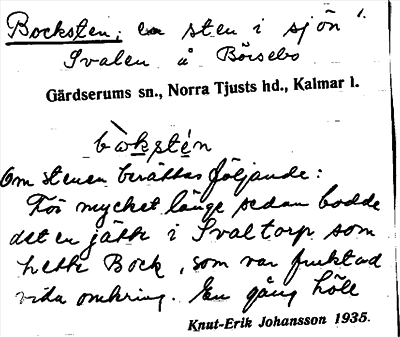 Bocksten, en sten i sjön 1.
Svalen å Börsebo
Gärdserums sn., Norra Tjusts hd., Kalmar l.
bòkstén
Om stenen berättas följande:
För mycket länge sedan bodde
det en jätte i Svaltorp som
hette Bock, som var fruktad
vida omkring. En gång höll
Knut-Erik Johansson 1935.